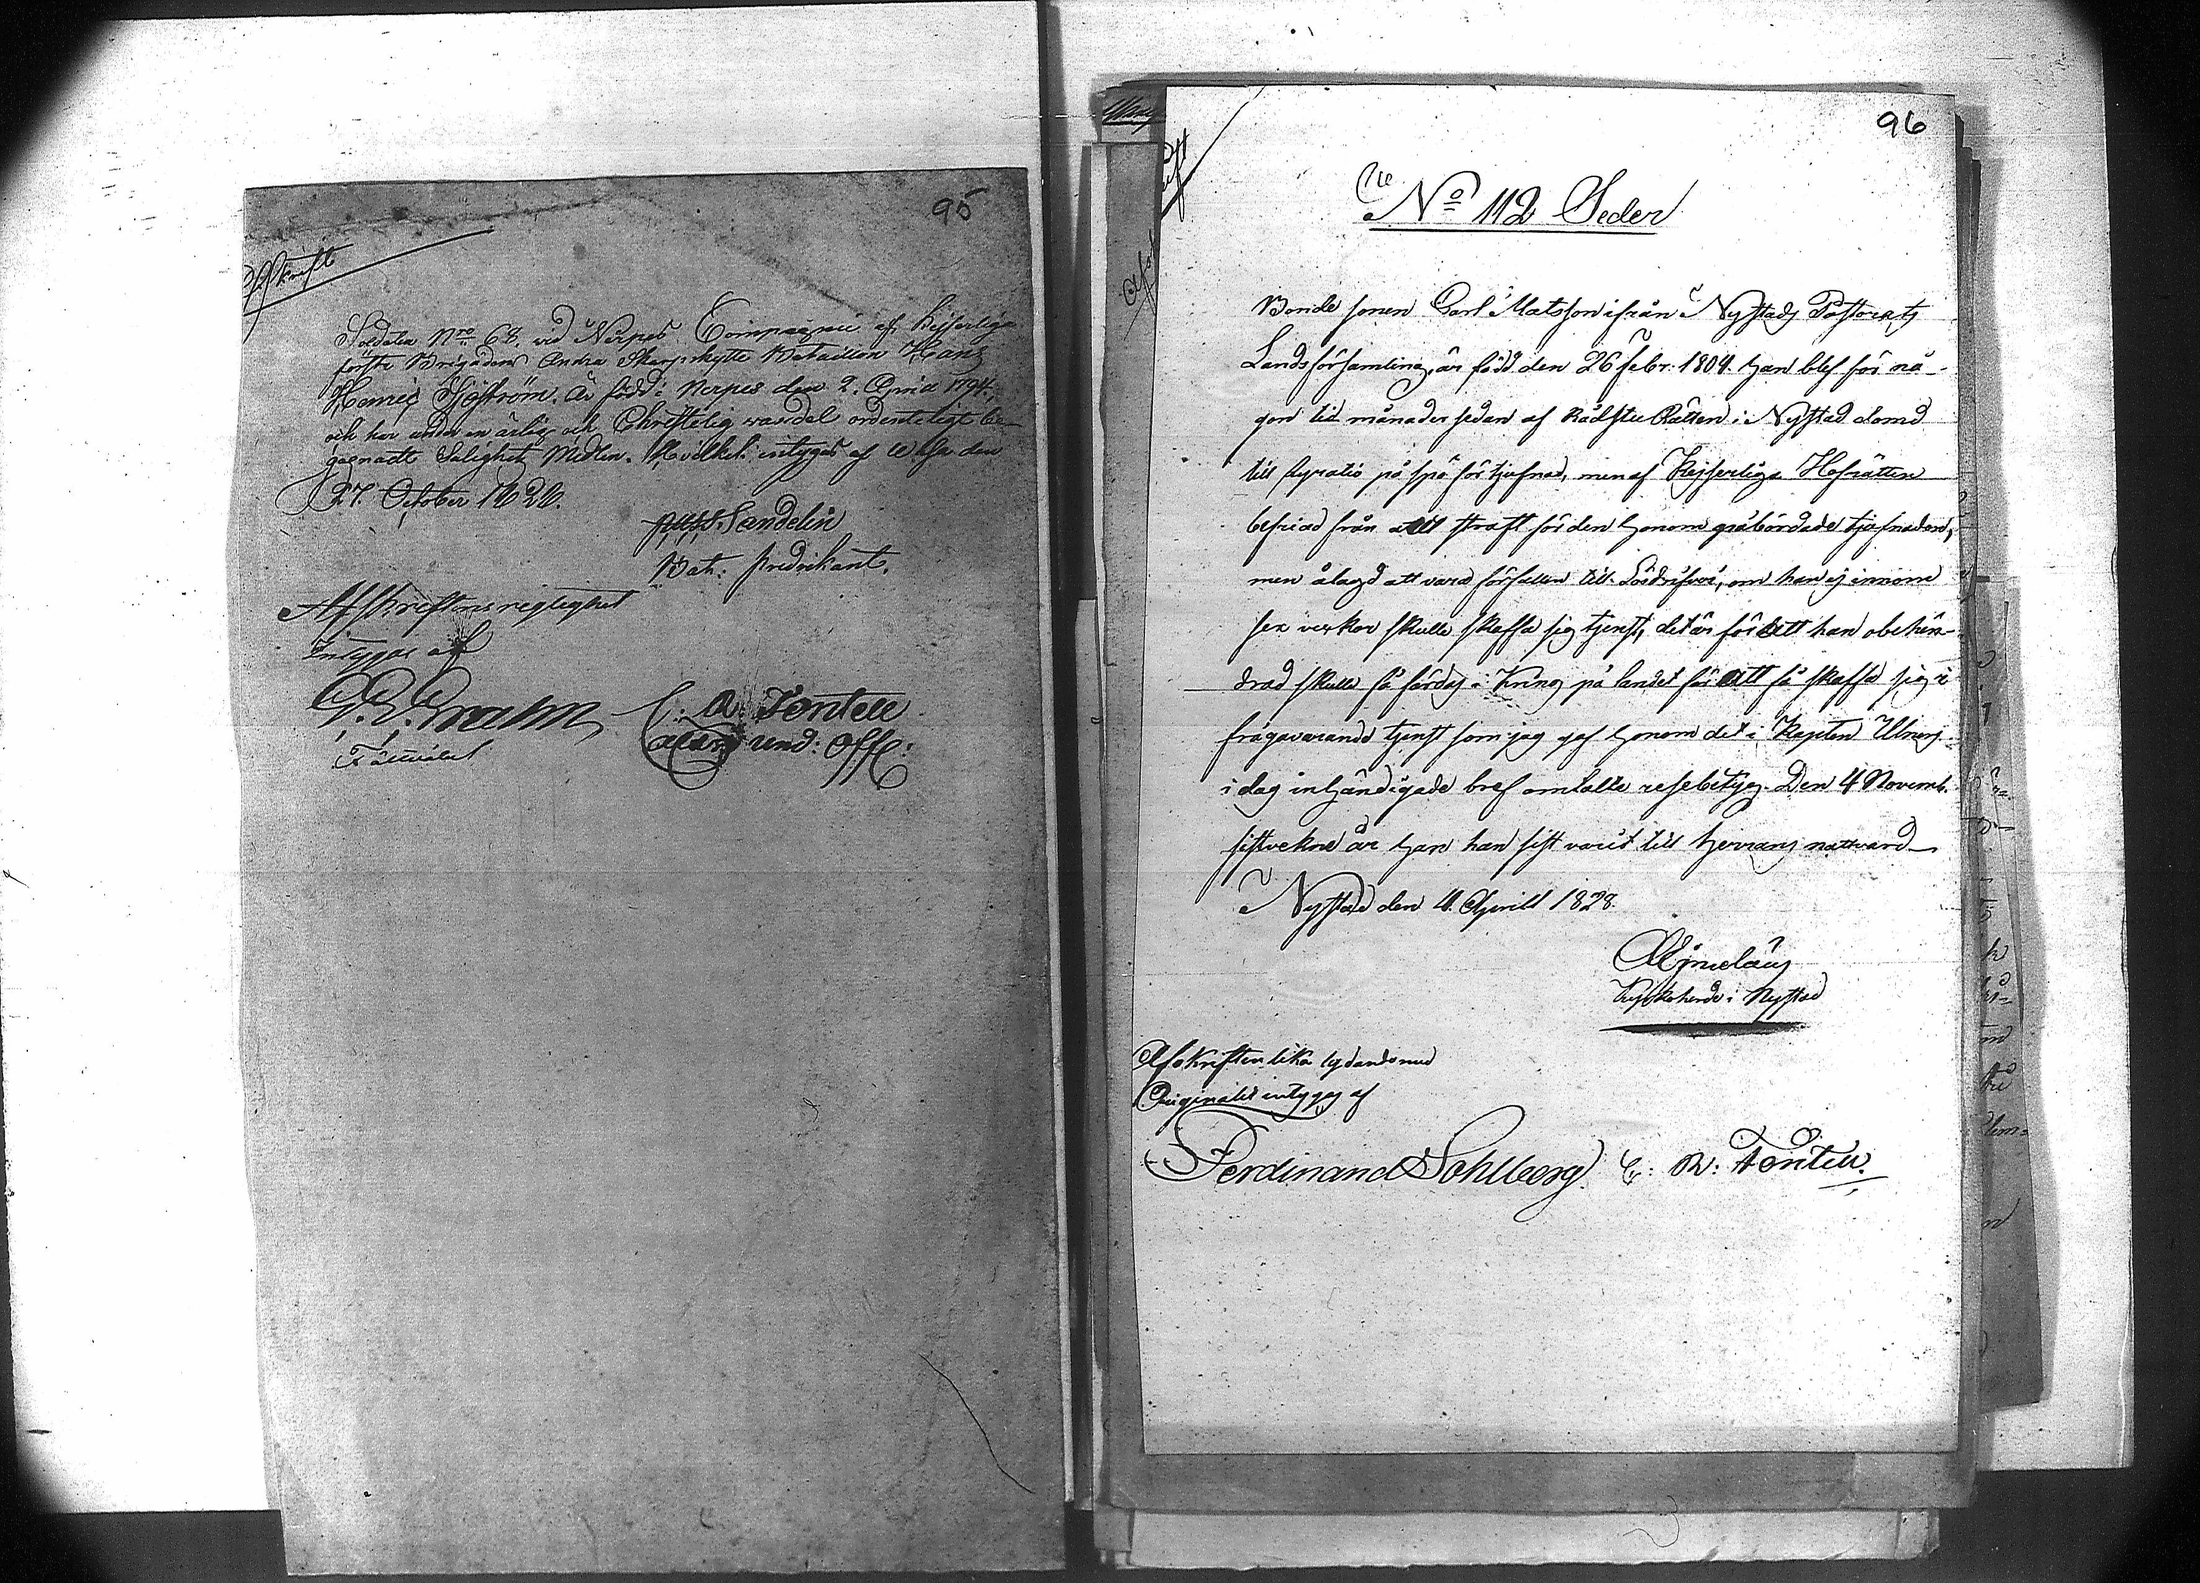 95
Afskrift
Soldaten Nro 68. vid Nerpes Compagnie af Kejserliga
första Brigadens Andra Skarpskytte Bataillon Hans
Henric Sjöström, är född i Nerpes den 2. April 1794.,
och har under en ärlig och Christelig wandel ordenteligt be-
gagnadt Salighets Medlen. Hvilket intygas af Wasa den
27. October 1826.
Sandelin
Bat: Predikant.
Afskriftens rigtighet
intygas af
G. E. Gram
Fältwäbel
C: A Fontell
und: Off:
96
No 112 Seder
Bonde sonen Carl Matsson ifrån Nystads Pastorats
Landsförsamling, är född den 26 Febr. 1809. Han blef för nå-
gon tid månader sedan af Rådstu Rätten i Nystad dömd
till på spö för tjufnad, men af Kejserliga Hofrätten
befriad från allt straff för den honom påbördade tjufnaden,
men ålagd att vara förfallen till om han ej innom
sex veckor skulle skaffa sig tjenst, det är för att han obehin-
drad skulle få färdas i Kring på landet för att få skaffa sig i
frågavarande tjenst som jag gaf honom det i Kapten
i dag inhändigade bref omtalte resebetyg. Den 4 Novemb.
sistvekne år har han sist varit till Herrans nattvard
Nystad den 4. Aprill 1828.
Kyrkoherde i Nystad
Afskriften lika lydande med
Originalet intygas af
Ferdinand Sohlberg. C: A: Fontell.